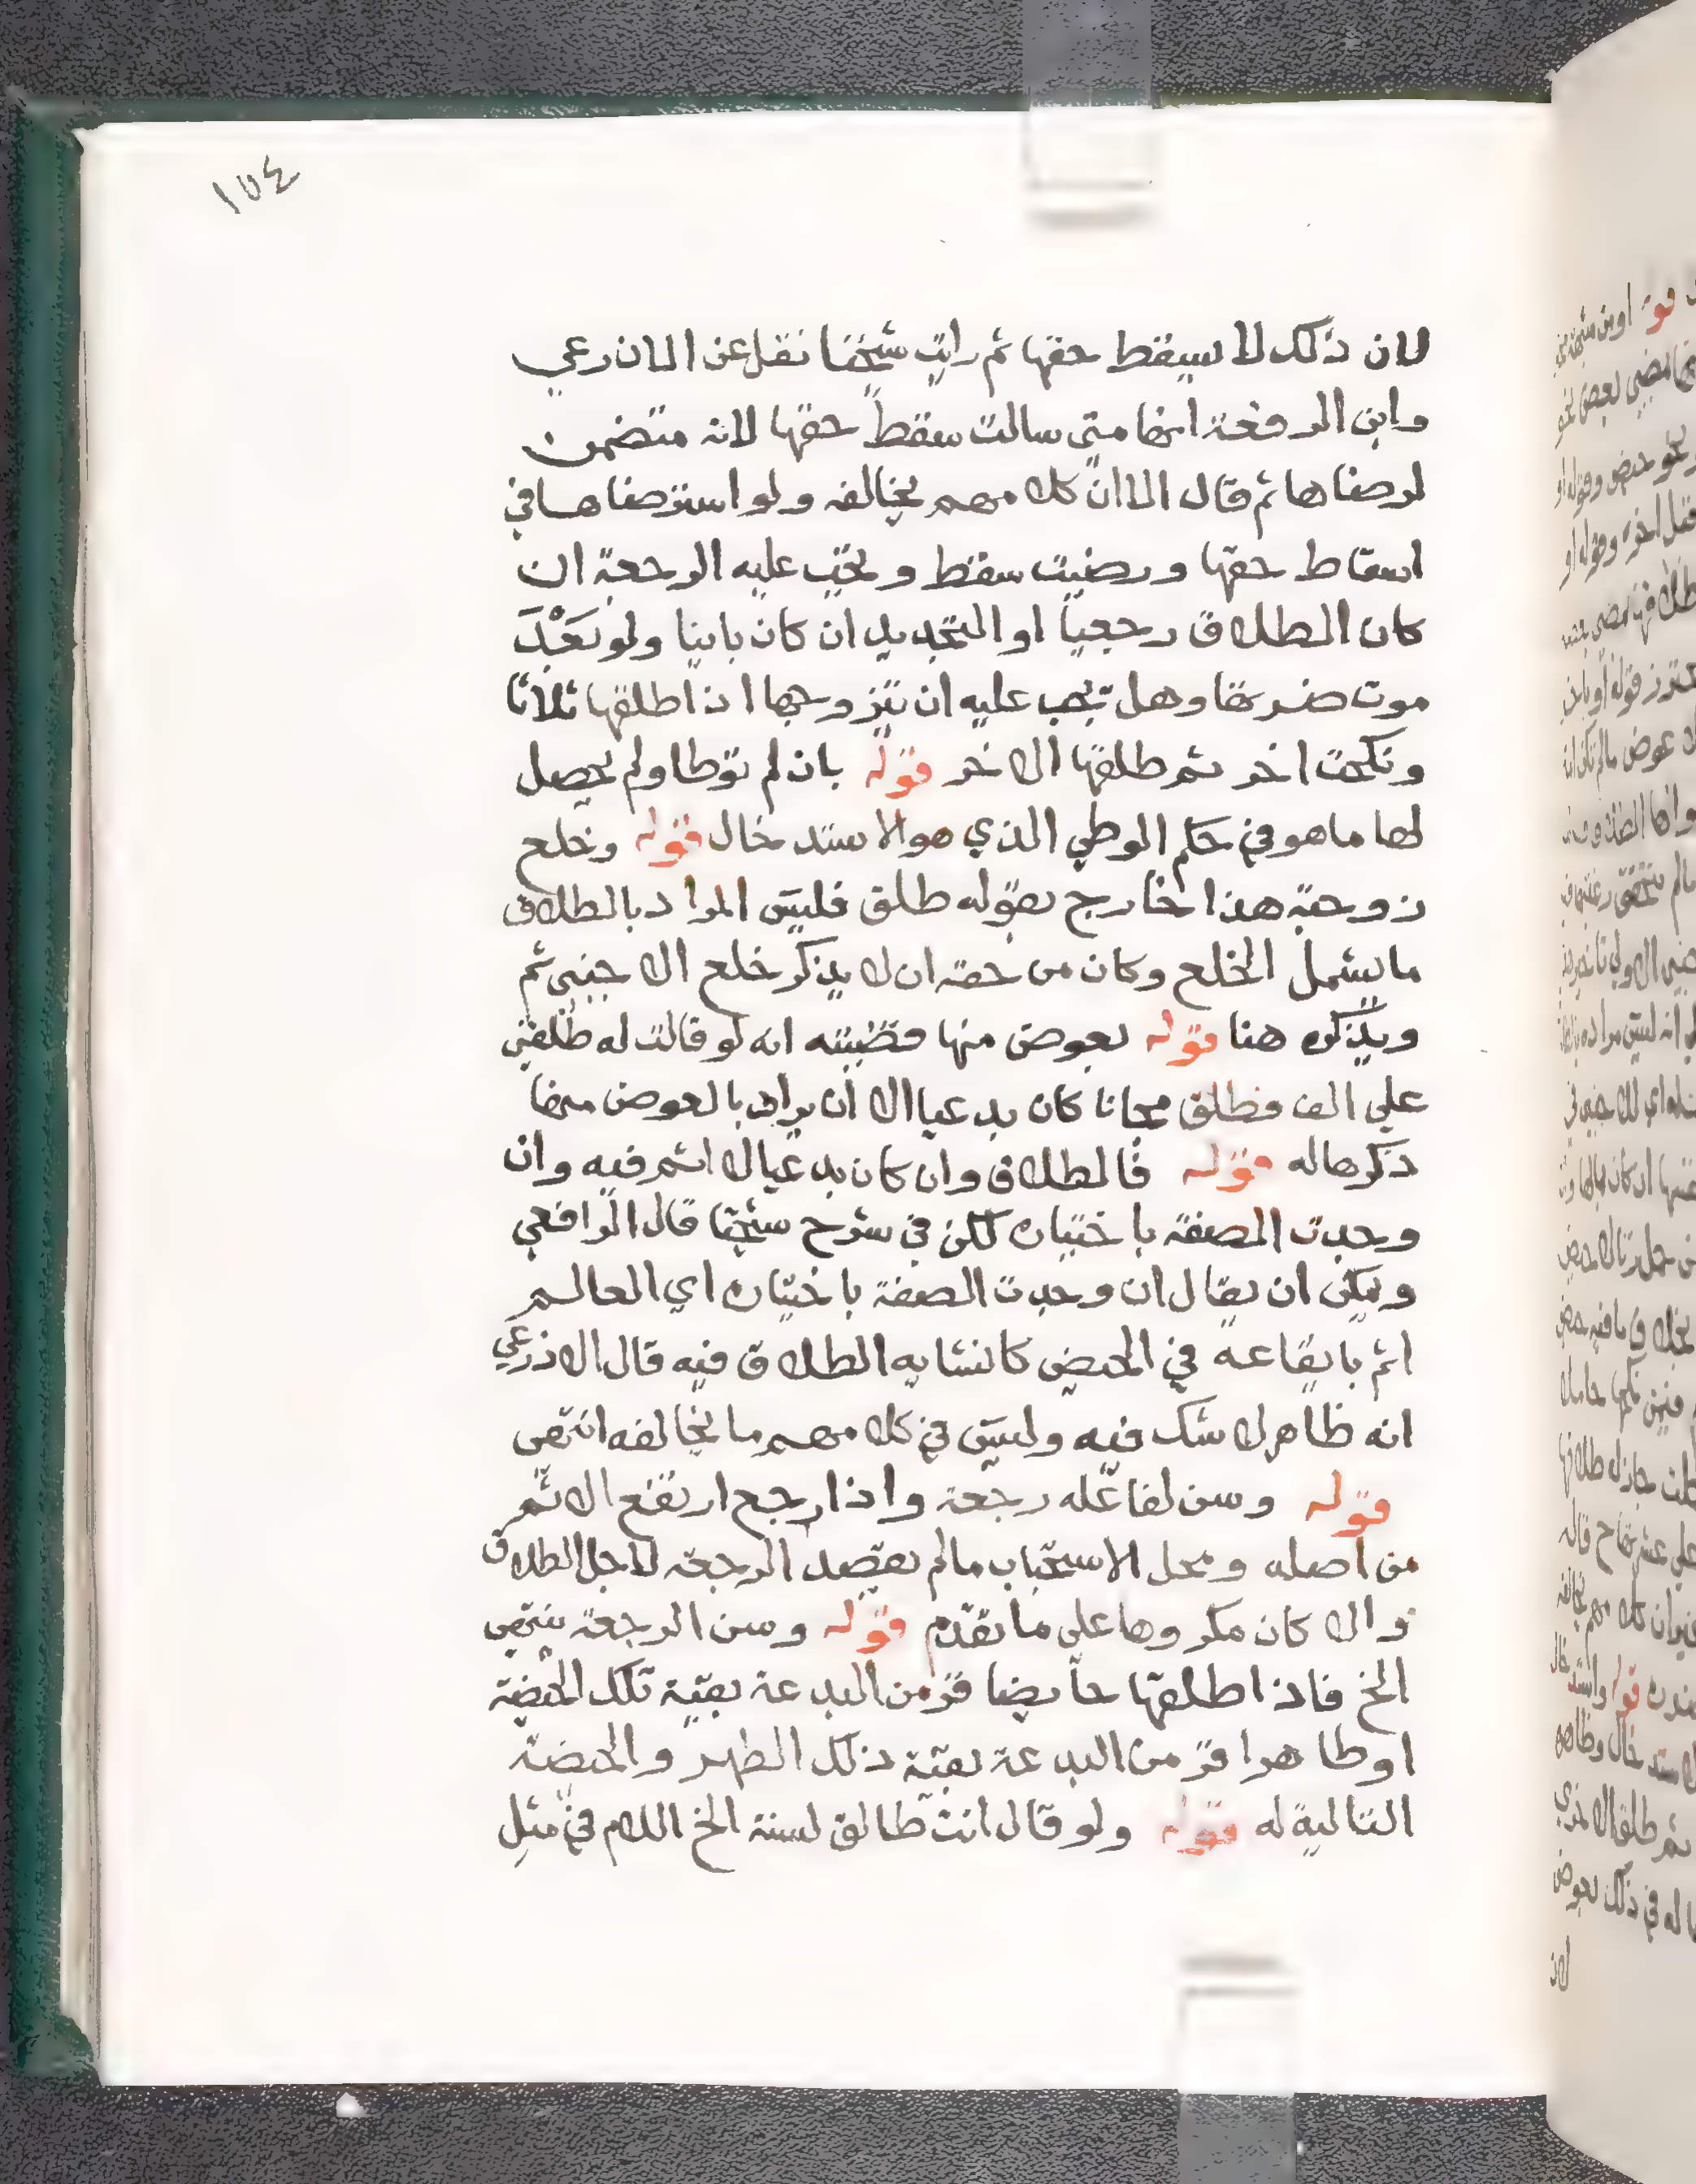 ١٥٤
لان ذلك لا يسقط حقها ثم رايت شيخنا نقل عن الاذرعي
وابن الرفعة انها متى سالت سقط حقها لانه متضمن
لرضاها ثم قال الا ان كلامهم يخالفه ولو استرضاها في
اسقاط حقها ورضيت سقط وتجب عليه الرجعة ان
كان الطلاق رجعيا او التجديد ان كان باينا ولو بَعْدَ
موت ضرتها وهل يجب عليه ان يتزوجها اذا طلقها ثلاثا
ونكحت اخر ثم طلقها الاخر قوله بان لم توطا ولم يحصل
لها ما هو في حكم الوطي الذي هو الاستدخال قوله وخلع
زوجة هذا خارج بقوله طلق فليس المراد بالطلاق
ما يشمل الخلع وكان من حقه ان لا يذكر خلع الاجنبي ثم
ويذكره هنا قوله بعوض منها قضيته انه لو قالت له طلقني
على الف فطلق مجانا كان بدعيا الا ان يراد بالعوض منها
ذكرها له قوله فالطلاق وان كان بدعيا لا اثم فيه وان
وجدت الصفة باختياره لكن في شرح شيخنا قال الرافعي
ويمكن ان يقال ان وجدت الصفة باختياره اي العالم
اثم بايقاعه في الحيض كانشايه الطلاق فيه قال الاذرعي
انه ظاهر لا شك فيه وليس في كلامهم ما يخالفه انتهى
قوله وسن لفاعله رجعة واذا رجع ارتفع الاثم
من اصله ومحل الاستحباب ما لم يقصد الرجعة لاجل الطلاق
والا كان مكروها على ما تقدم قوله وسن الرجعة ينتهي
الخ فاذا طلقها حايضا فزمن البدعة بقية تلك الحيضة
او طاهرا فزمن البدعة بقية ذلك الطهر والحيضة
التالية له قوله ولو قال انت طالق لسنة الخ اللام في مثل